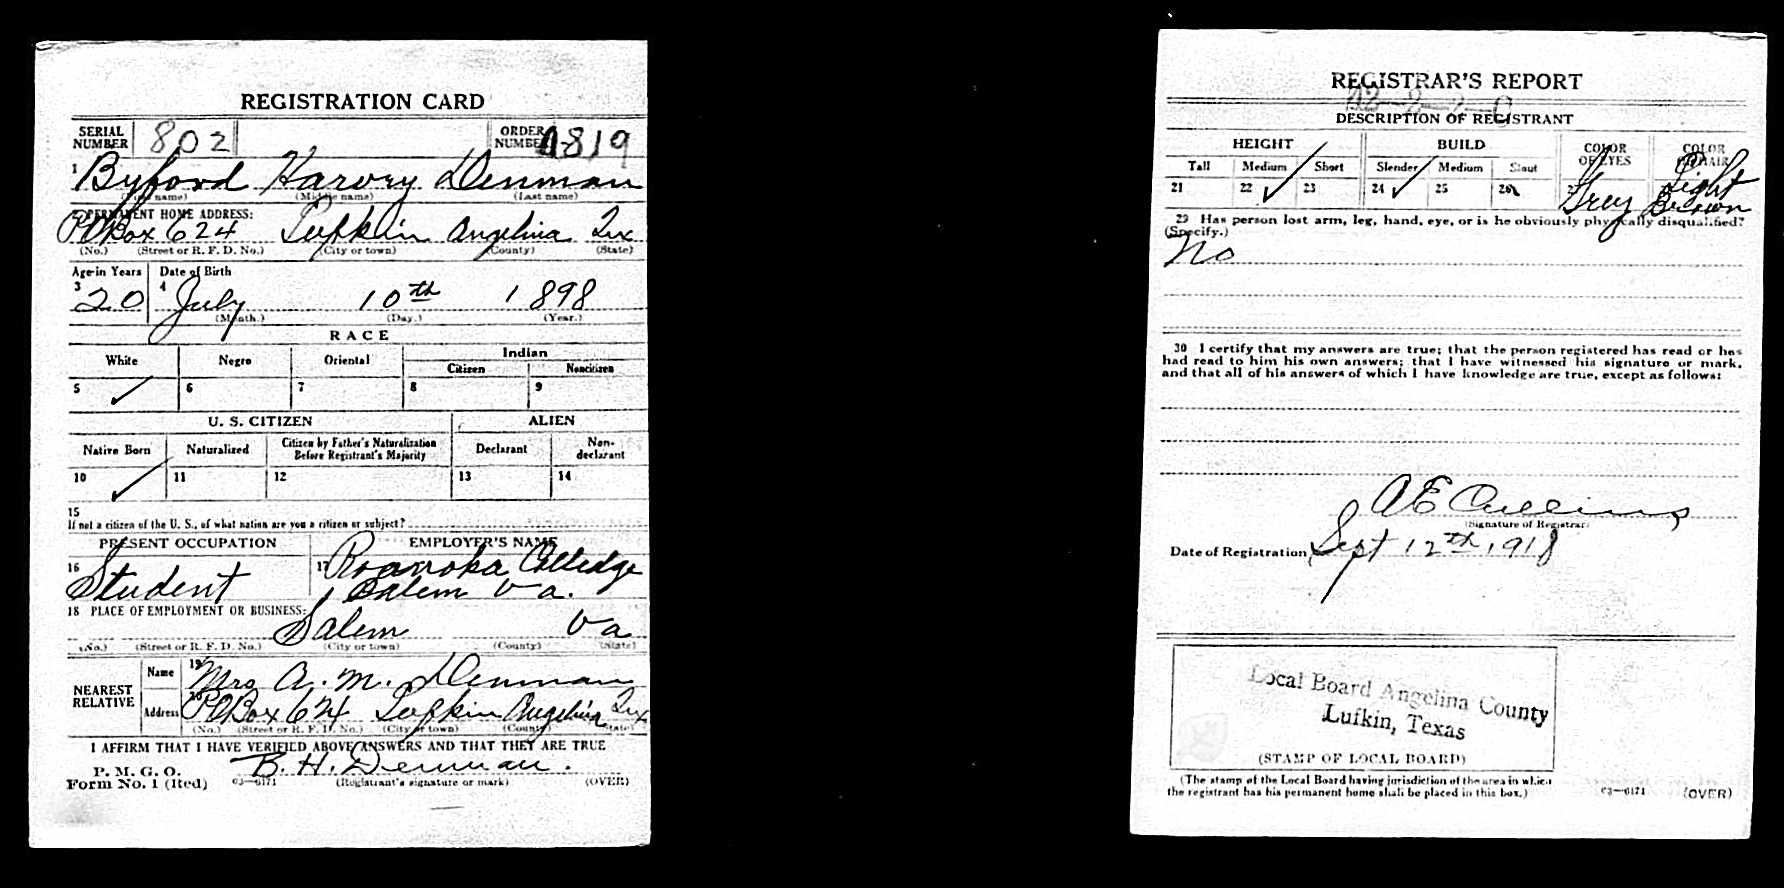 REGISTRATION CARD
SERIAL NUMBER 802 ORDER NUMBER 1819
1 Byford Harvey Denman
(First name) (Middle name) (Last name)
2 PERMANENT HOME ADDRESS:
PO Box 624 Lufkin Angelina Tex
(No.) (Street or R. F. D. No.) (City or town) (County) (State)
Age in Years Date of Birth
3 20 4 July 10th 1898
(Month.) (Day.) (Year.)
RACE
White Negro Oriental Indian
Citizen Noncitizen
5 ✓ 6 7 8 9
U. S. CITIZEN ALIEN
Native Born Naturalized Citizen by Father's Naturalization Before Registrant's Majority Declarant Non-declarant
10 ✓ 11 12 13 14
15
If not a citizen of the U. S., of what nation are you a citizen or subject?
PRESENT OCCUPATION EMPLOYER'S NAME
16 Student 17 Roanoka Colledge
Salem Va.
18 PLACE OF EMPLOYMENT OR BUSINESS:
Salem Va
(No.) (Street or R. F. D. No.) (City or town) (County) (State)
NEAREST RELATIVE Name 19 Mrs A. M. Denman
Address 20 PO Box 624 Lufkin Angelina Tex
(No.) (Street or R. F. D. No.) (City or town) (County) (State)
I AFFIRM THAT I HAVE VERIFIED ABOVE ANSWERS AND THAT THEY ARE TRUE
P. M. G. O.
Form No. 1 (Red) 03—6171 B. H. Denman.
(Registrant's signature or mark) (OVER)
REGISTRAR'S REPORT
42-2-2-C
DESCRIPTION OF REGISTRANT
HEIGHT BUILD COLOR OF EYES COLOR OF HAIR
Tall Medium Short Slender Medium Stout
21 22 ✓ 23 24 ✓ 25 26 27 Grey Light Brown
29 Has person lost arm, leg, hand, eye, or is he obviously physically disqualified?
(Specify.)
No
30 I certify that my answers are true; that the person registered has read or has
had read to him his own answers; that I have witnessed his signature or mark,
and that all of his answers of which I have knowledge are true, except as follows:
A E Cullins
(Signature of Registrar)
Date of Registration Sept 12th, 1918
Local Board Angelina County
Lufkin, Texas
(STAMP OF LOCAL BOARD)
(The stamp of the Local Board having jurisdiction of the area in which
the registrant has his permanent home shall be placed in this box.) 03—6171 (OVER)